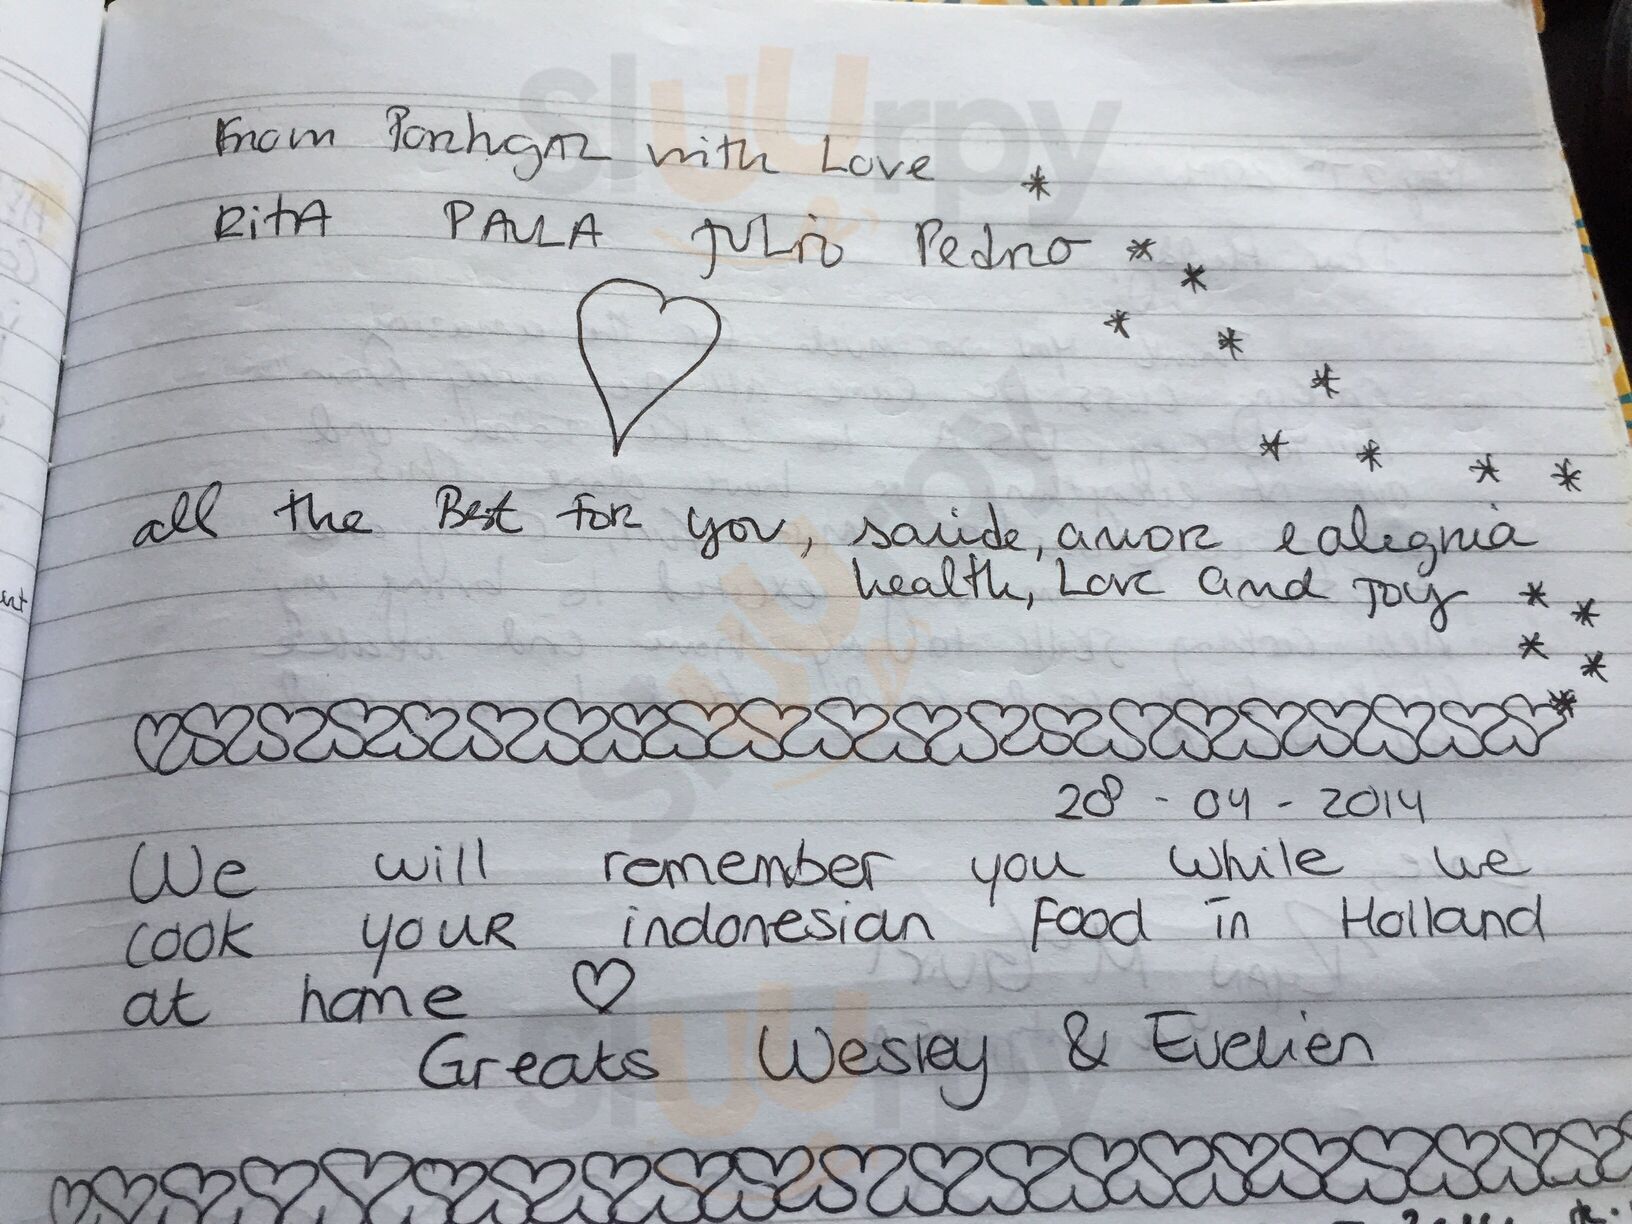 From Portugal with Love
RitA PAULA JULIO Pedro
all the Best For you, saúde, amor e alegria
health, Love and Joy
28 - 04 - 2014
We will remember you while we
cook your indonesian Food in Holland
at home
Greats Wesley & Evelien